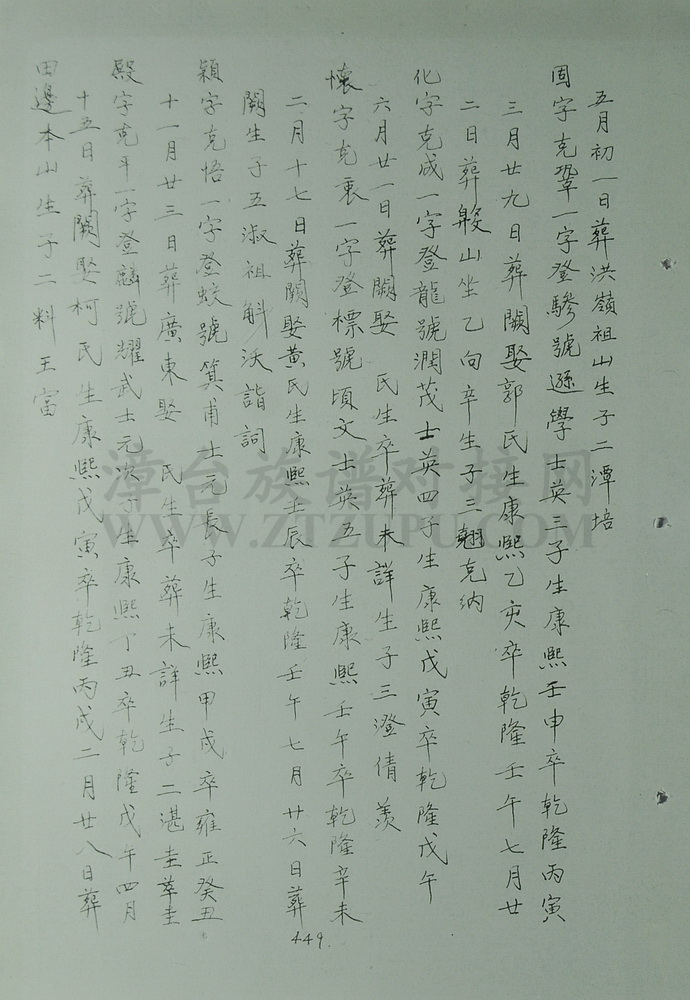 五月初一日葬洪嶺祖山生子二潭培
固字克鞏一字登驂號遜學士英三子生康熙壬申卒乾隆丙寅
三月廿九日葬闕娶郭氏生康熙乙亥卒乾隆壬午七月廿
二日葬 山坐乙向卒生子三翹克納
化字克成一字登龍號潤茂士英四子生康熙戊寅卒乾隆戊午
六月廿一日葬闕娶 氏生卒葬未詳生子三澄倩羨
懷字克衷一字登標號頃文士英五子生康熙壬午卒乾隆辛未
二月十七日葬闕娶黃氏生康熙壬辰卒乾隆壬午七月廿六日葬
闕生子五淑祖斛沃詣詞
穎字克悟一字登蛟號箕甫士元長子生康熙甲戌卒雍正癸丑
十一月廿三日葬廣東娶 氏生卒葬未詳生子二湛圭萃圭
殿字克斗一字登麟號耀武士元次子生康熙丁丑卒乾隆戊午四月
十五日葬闕娶柯氏生康熙戊寅卒乾隆丙戌二月廿八日葬
田邊本山生子二料王富
449
漳台族谱对接网
WWW.ZTZUPU.COM